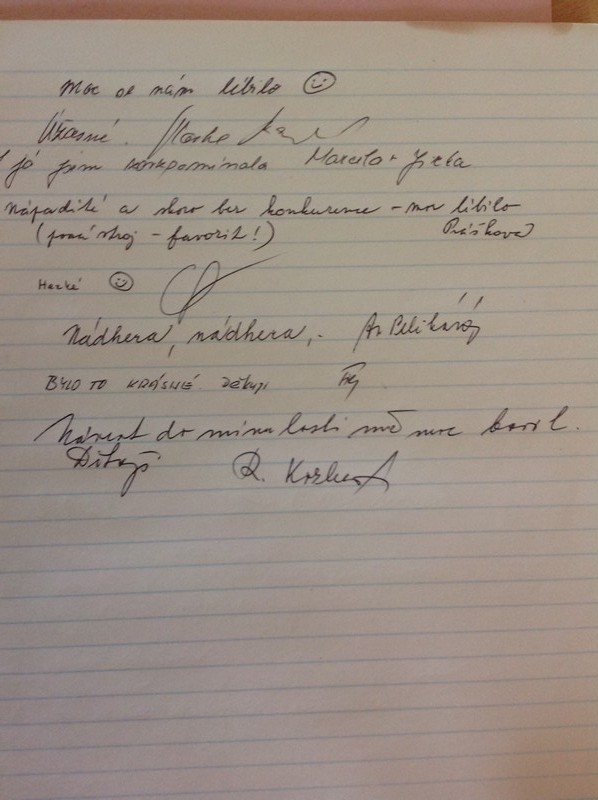 Moc se nám líbilo
Úžasné.
I já jsem zavzpomínala Marcela + Iveta
Nápadité a skoro bez konkurence - moc líbilo
(psací stroj - favorit!) Prášková
Hezké
Nádhera, nádhera,
BYLO TO KRÁSNÉ Děkuji
Návrat do minulosti mě moc bavil.
Děkuji R.